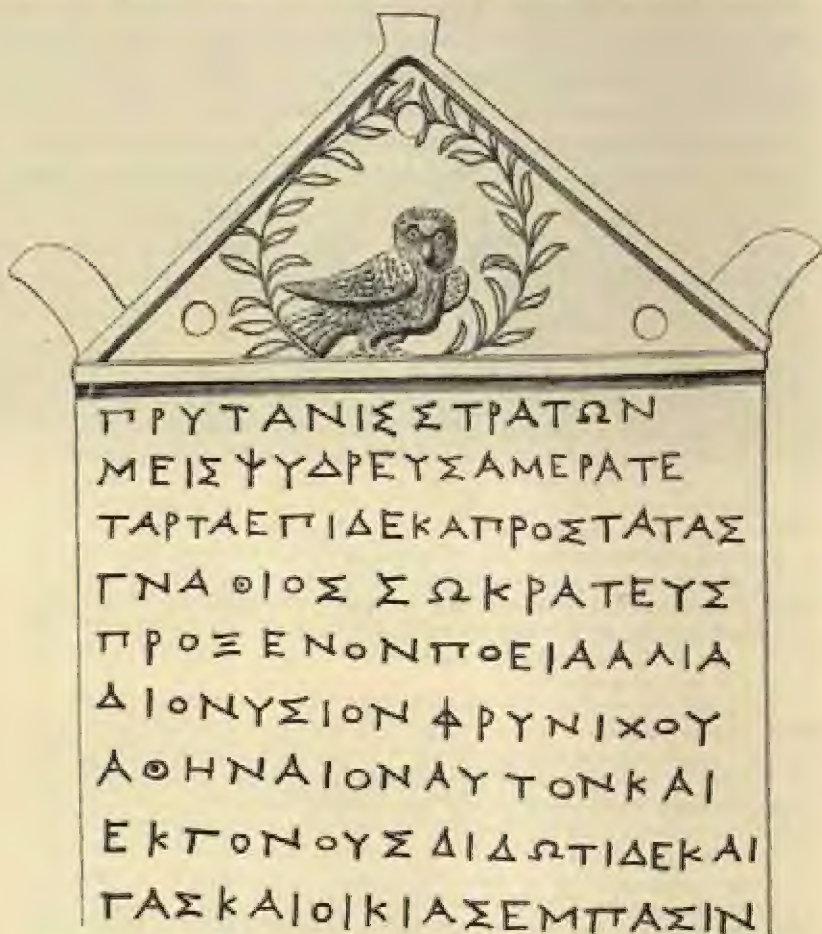 ΠΡΥΤΑΝΙΣ ΣΤΡΑΤΩΝ
ΜΕΙΣΨΥΔΡΕΥΣΑΜΕΡΑΤΕ
ΤΑΡΤΑΕΠΙΔΕΚΑΠΡΟΣΤΑΤΑΣ
ΓΝΑΘΙΟΣ ΣΩΚΡΑΤΕΥΣ
ΠΡΟΞΕΝΟΝΠΟΕΙΑΑΛΙΑ
ΔΙΟΝΥΣΙΟΝ ΦΡΥΝΙΧΟΥ
ΑΘΗΝΑΙΟΝΑΥΤΟΝΚΑΙ
ΕΚΓΟΝΟΥΣ ΔΙΔΩΤΙΔΕΚΑΙ
ΓΑΣΚΑΙΟΙΚΙΑΣΕΜΠΑΣΙΝ